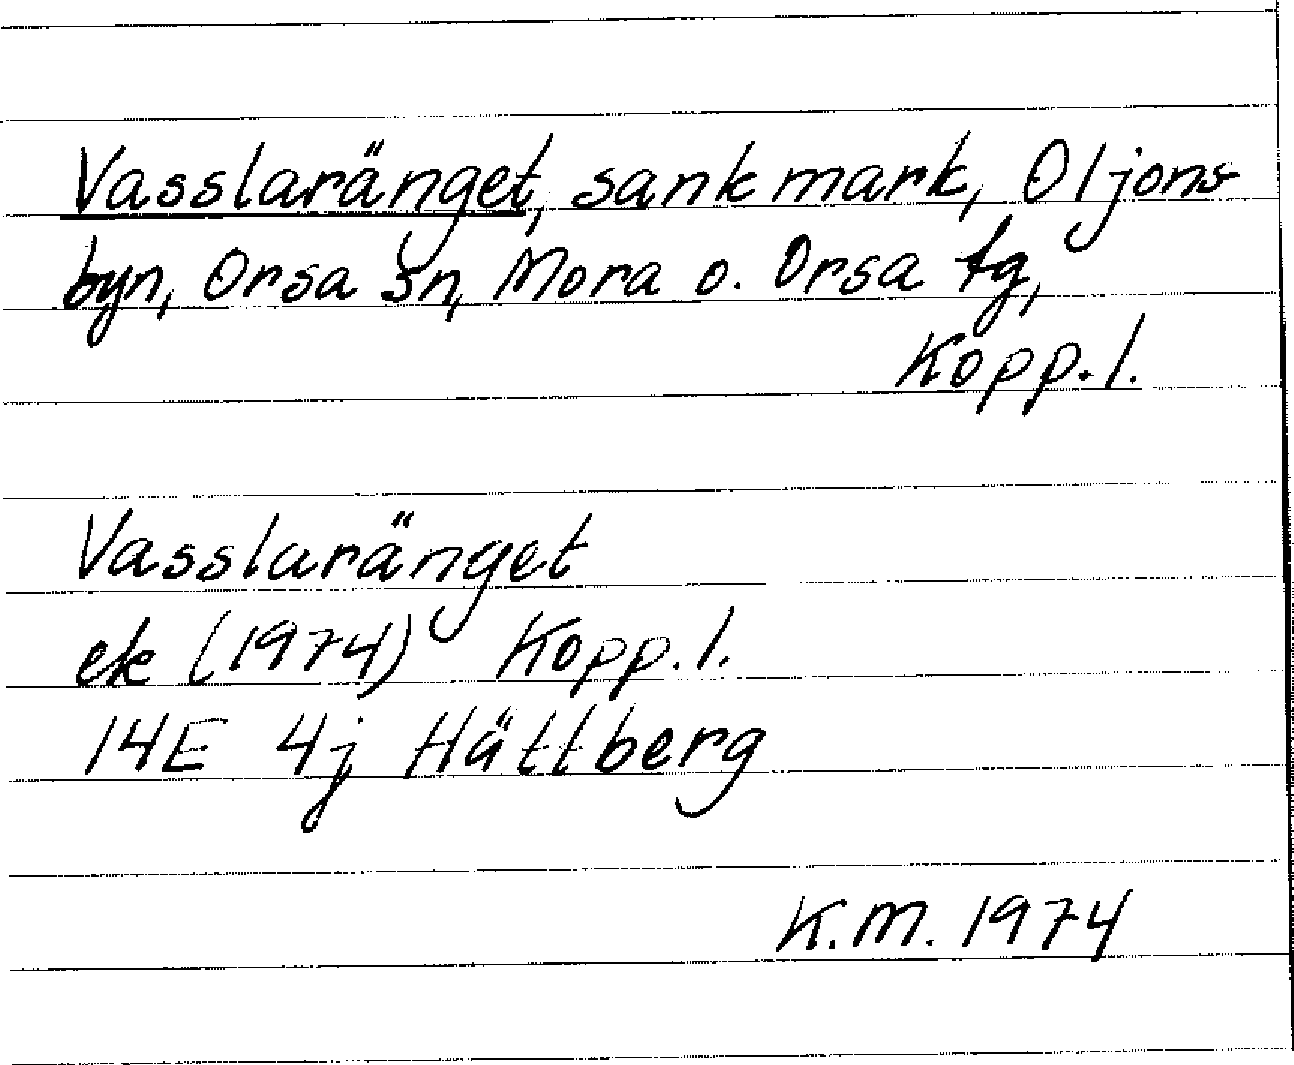 Vasslaränget, sank mark, Oljons-
byn, Orsa sn, Mora o. Orsa tg,
Kopp. l.
Vasslaränget
ek (1974) Kopp. l.
14E 4j Hättberg
K.M. 1974